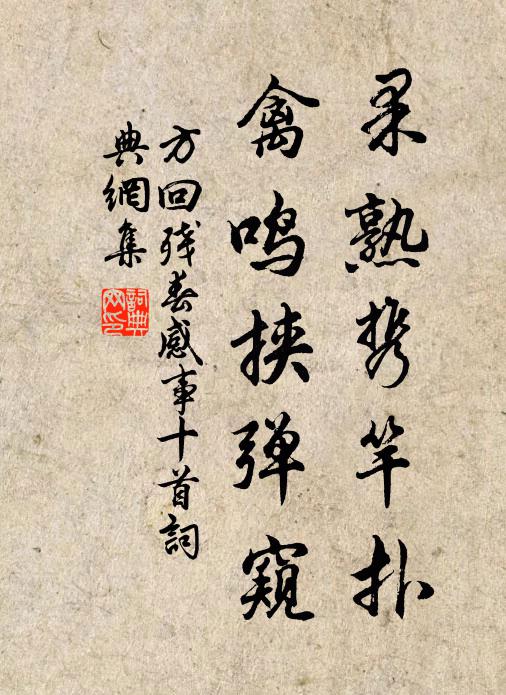 果熟携竿扑
禽鸣挟弹窥
方回残春感事十首詞
典網集
詞典
网印